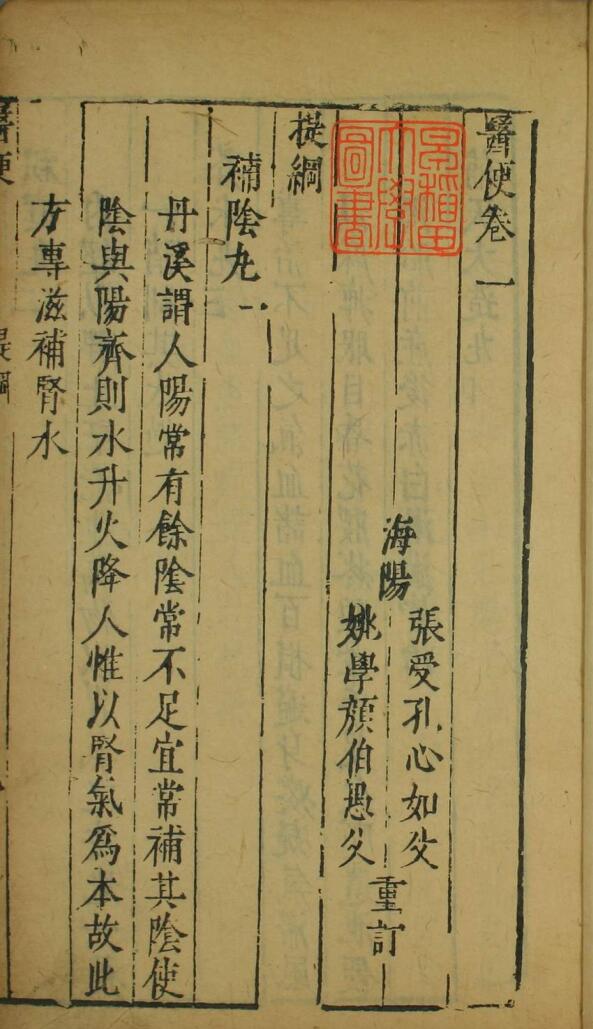 醫便卷一
海陽
張受孔心如父
姚學顏伯愚父
重訂
提綱
補陰丸一
丹溪謂人陽常有餘陰常不足宜常補其陰使
陰與陽齊則水升火降人惟以腎氣爲本故此
方專滋補腎水
醫便
提綱
早稻田大學圖書